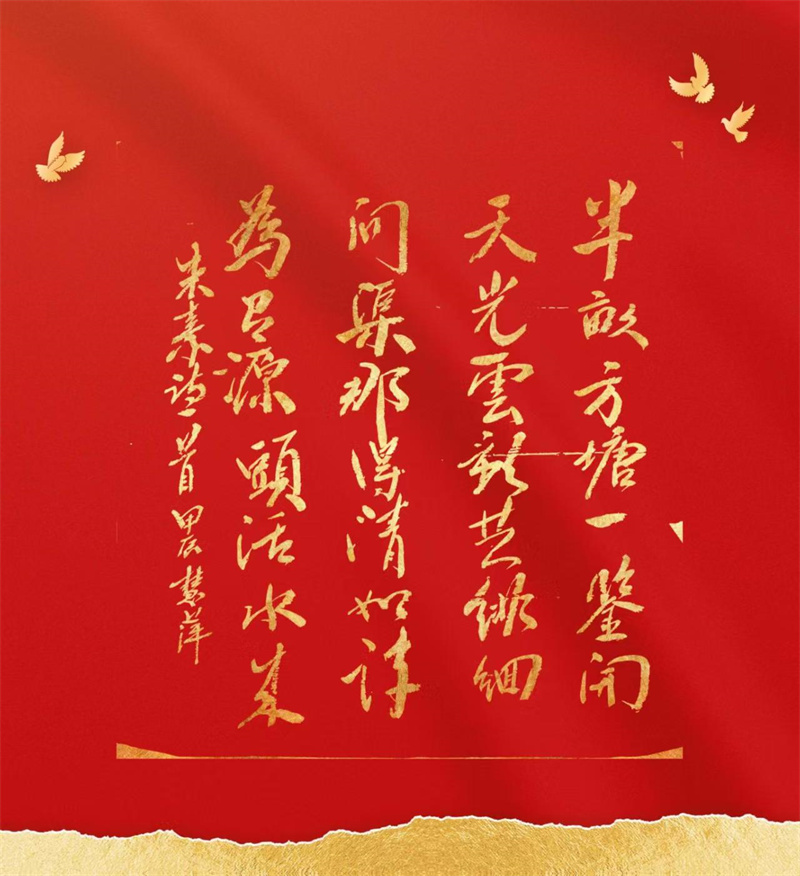 半畝方塘一鑒開
天光雲影共徘徊
問渠那得清如許
為有源頭活水來
朱熹詩一首甲辰慧萍